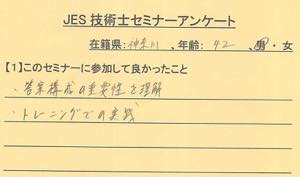 JES 技術士セミナーアンケート
在籍県:神奈川、年齢:42、男・女
【1】このセミナーに参加して良かったこと
・答案構成の重要性を理解
・トレーニングでの実践